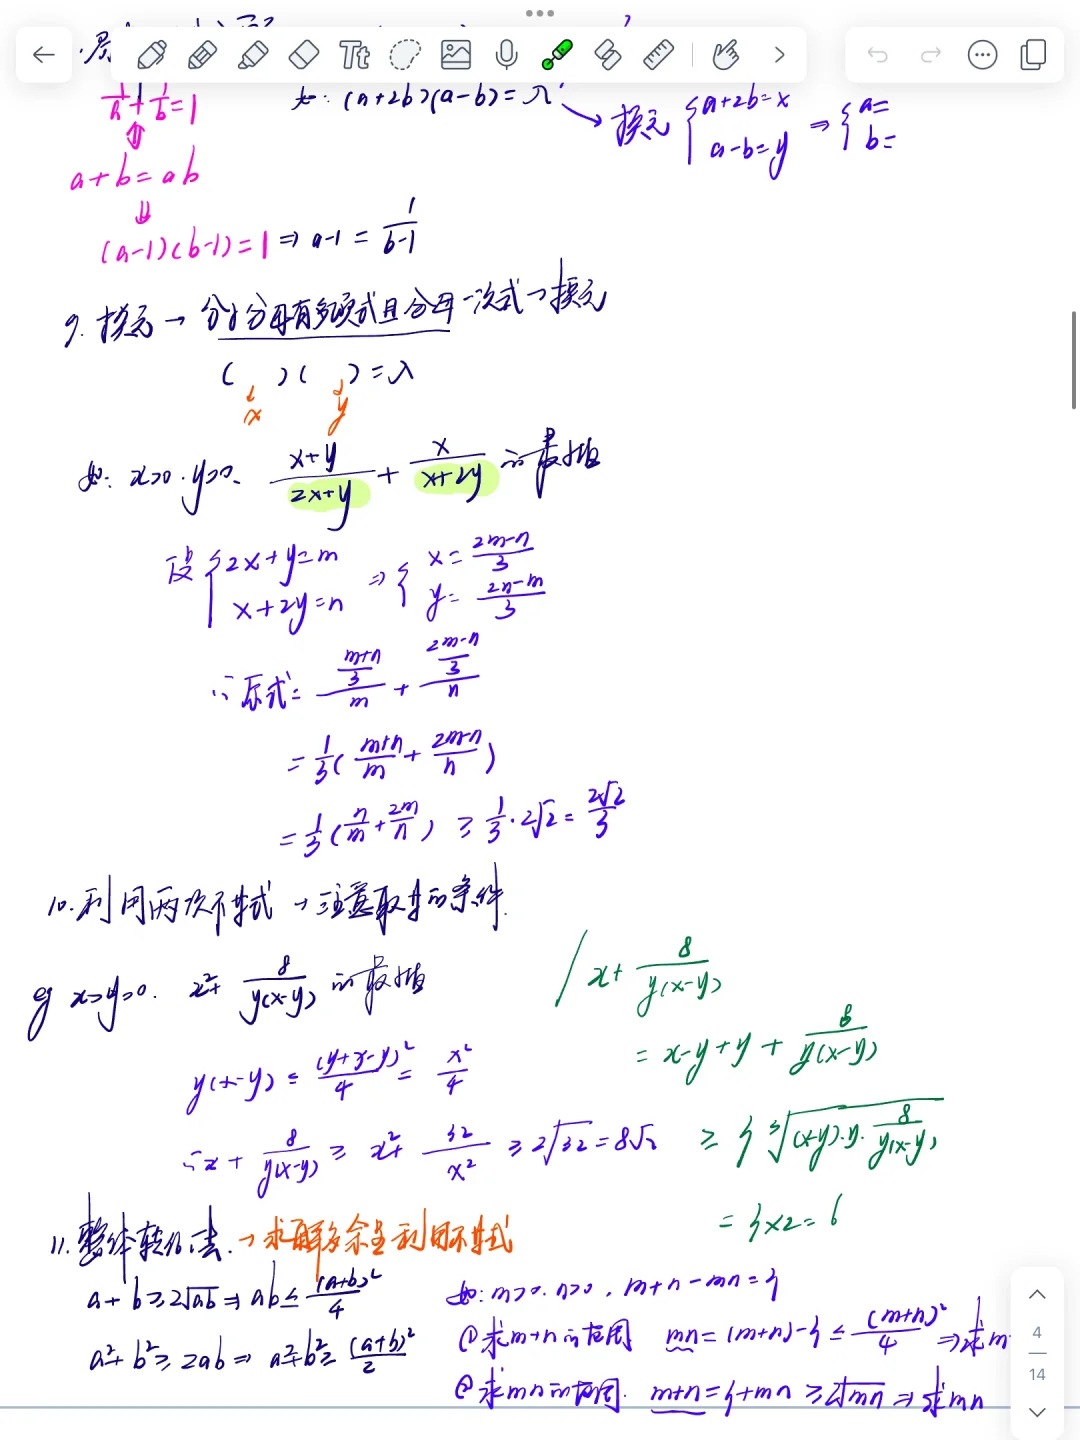 Tt
1/a + 1/b = 1
如: (a+2b)(a-b)=λ
→ 换元 { a+2b=x a-b=y ⇒ { a= b=
⇕
a+b=ab
⇓
(a-1)(b-1)=1 ⇒ a-1 = 1/(b-1)
9. 换元 → 分子分母有多项式且分母一次式→换元
( )( )=λ
x y
如: x>0. y>0. (x+y)/(2x+y) + x/(x+2y) 的最值
设 { 2x+y=m x+2y=n ⇒ { x=(2m-n)/3 y=(2n-m)/3
∴ 原式= ((m+n)/3)/m + ((2m-n)/3)/n
= 1/3 ( (m+n)/m + (2m-n)/n )
= 1/3 ( n/m + 2m/n ) ≥ 1/3 · 2√2 = 2√2/3
10. 利用两次不等式 → 注意取等的条件.
eg x>y>0. x²+ 8/(y(x-y)) 的最值
y(x-y) ≤ (y+x-y)²/4 = x²/4
∴ x + 8/(y(x-y)) ≥ x²+ 32/x² ≥ 2√32 = 8√2
x+ 8/(y(x-y))
= x-y+y + 8/(y(x-y))
≥ 3 ³√((x-y)·y· 8/(y(x-y)))
= 3×2=6
11. 整体转化法. → 求解多余量利用不等式
a+b≥2√ab ⇒ ab≤ (a+b)²/4
a²+b²≥2ab ⇒ a²+b²≥ (a+b)²/2
如: m>0. n>0, m+n-mn=3
① 求m+n的范围 mn=(m+n)-3 ≤ (m+n)²/4 ⇒ 求m
② 求mn的范围. m+n=3+mn ≥2√mn ⇒ 求mn
4
14